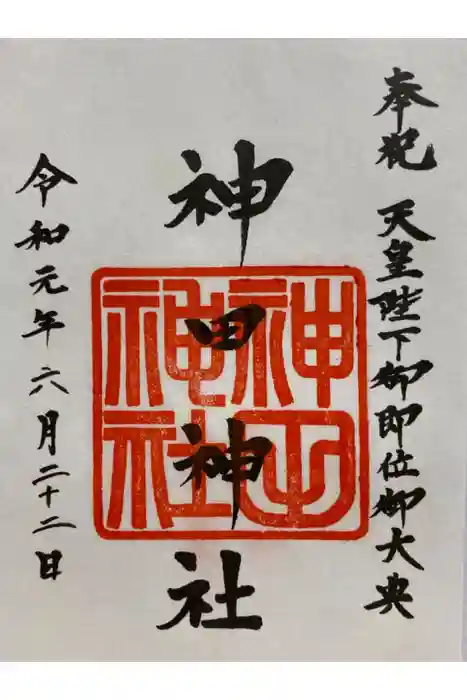 奉祝 天皇陛下御即位御大典
神田神社
神田神社
令和元年六月二十二日